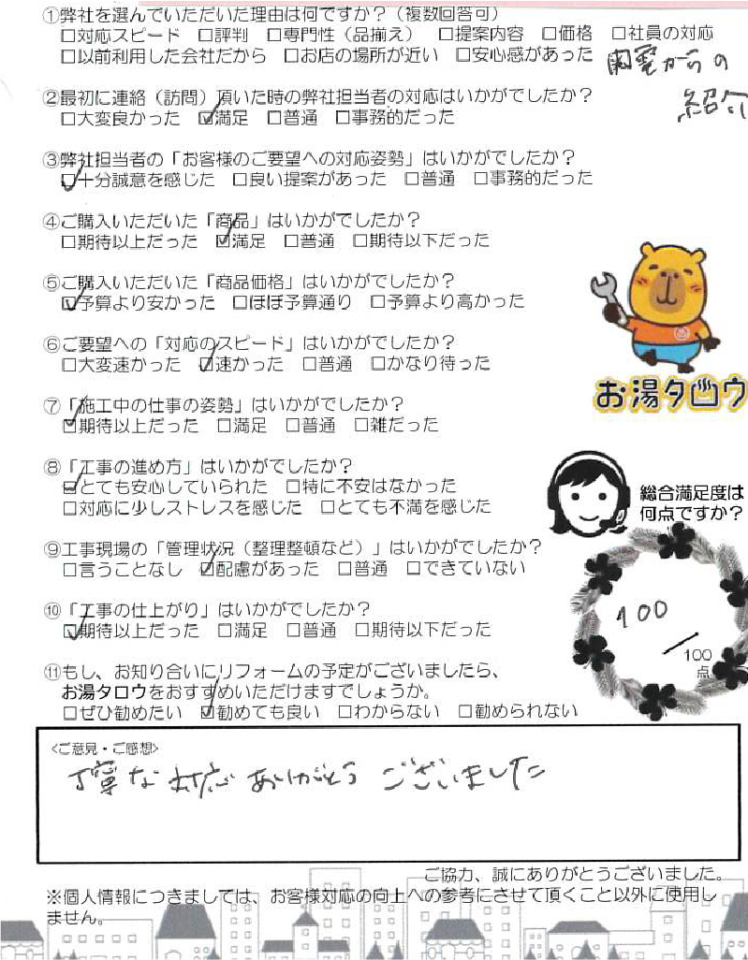 ①弊社を選んでいただいた理由は何ですか?（複数回答可）
□対応スピード □評判 □専門性（品揃え） □提案内容 □価格 □社員の対応
□以前利用した会社だから □お店の場所が近い □安心感があった
関電からの
紹介
②最初に連絡（訪問）頂いた時の弊社担当者の対応はいかがでしたか?
□大変良かった ☑満足 □普通 □事務的だった
③弊社担当者の「お客様のご要望への対応姿勢」はいかがでしたか?
☑十分誠意を感じた □良い提案があった □普通 □事務的だった
④ご購入いただいた「商品」はいかがでしたか?
□期待以上だった ☑満足 □普通 □期待以下だった
⑤ご購入いただいた「商品価格」はいかがでしたか?
☑予算より安かった □ほぼ予算通り □予算より高かった
⑥ご要望への「対応のスピード」はいかがでしたか?
□大変速かった ☑速かった □普通 □かなり待った
⑦「施工中の仕事の姿勢」はいかがでしたか?
☑期待以上だった □満足 □普通 □雑だった
お湯タロウ
⑧「工事の進め方」はいかがでしたか?
☑とても安心していられた □特に不安はなかった
□対応に少しストレスを感じた □とても不満を感じた
総合満足度は
何点ですか?
⑨工事現場の「管理状況（整理整頓など）」はいかがでしたか?
□言うことなし ☑配慮があった □普通 □できていない
⑩「工事の仕上がり」はいかがでしたか?
☑期待以上だった □満足 □普通 □期待以下だった
100
/100
点
⑪もし、お知り合いにリフォームの予定がございましたら、
お湯タロウをおすすめいただけますでしょうか。
□ぜひ勧めたい ☑勧めても良い □わからない □勧められない
<ご意見・ご感想>
丁寧な対応ありがとうございました
ご協力、誠にありがとうございました。
※個人情報につきましては、お客様対応の向上への参考にさせて頂くこと以外に使用し
ません。